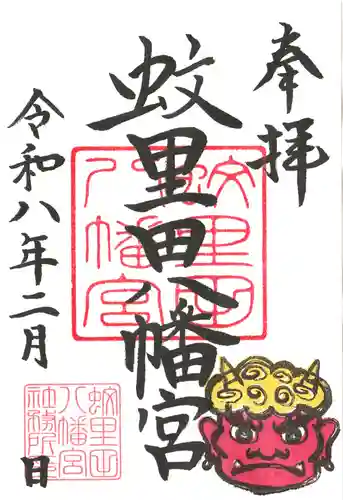 奉拝
蚊里田八幡宮
蚊里田八幡宮
令和八年二月　日
蚊里田八幡宮社務所印